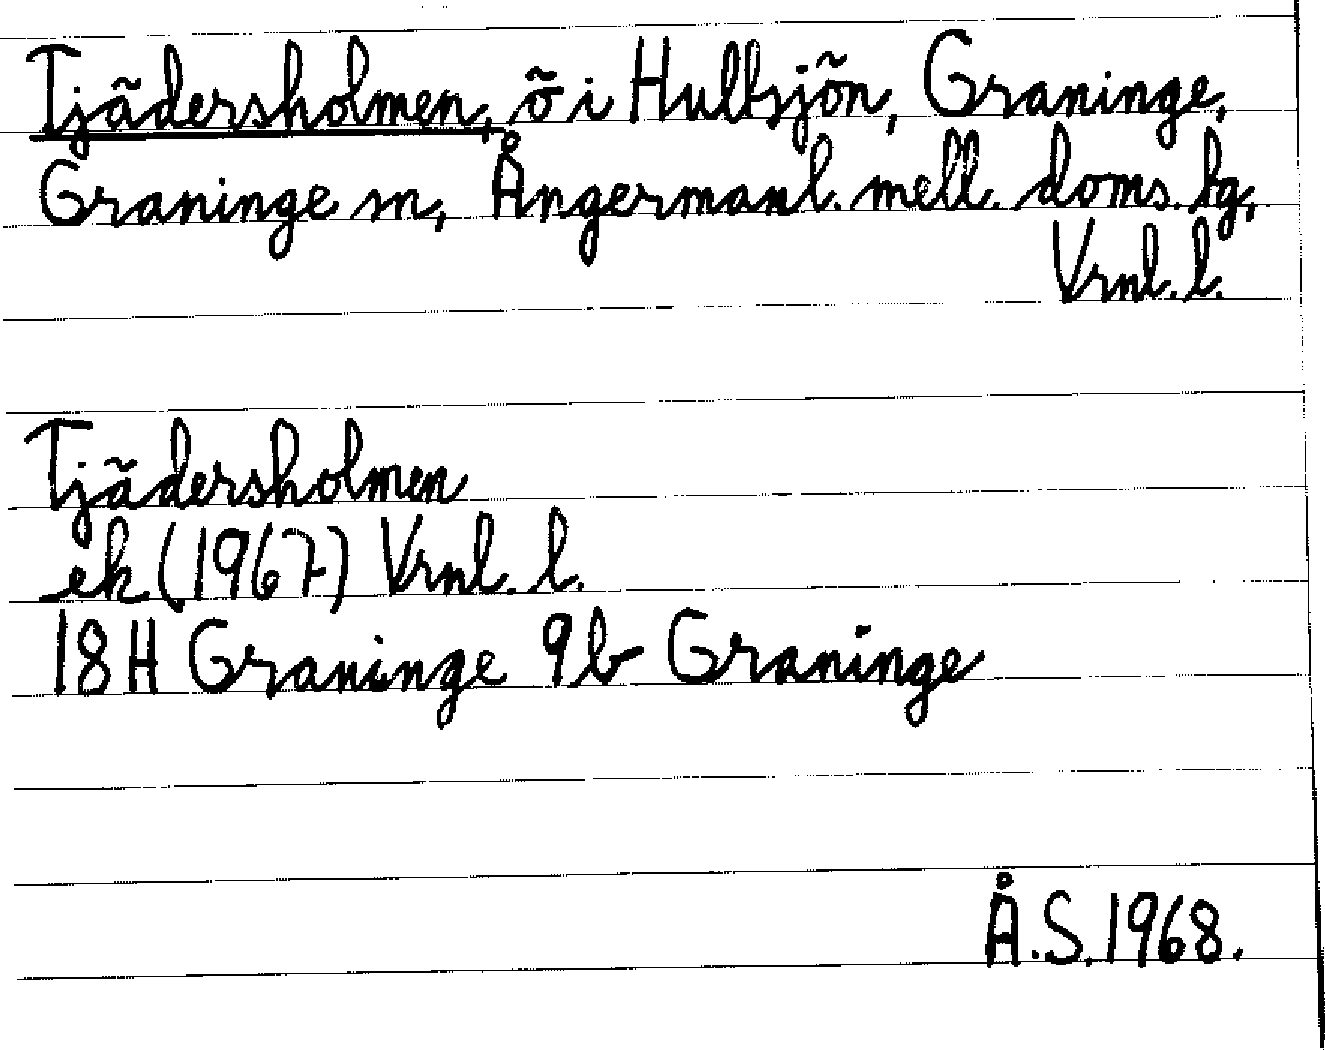 Tjädersholmen, ö i Hullsjön, Graninge,
Graninge sn, Ångermanl. mell. doms. hg,
Vrnl. l.
Tjädersholmen
ek (1967) Vrnl. l.
18H Graninge 9b Graninge
Å.S. 1968.